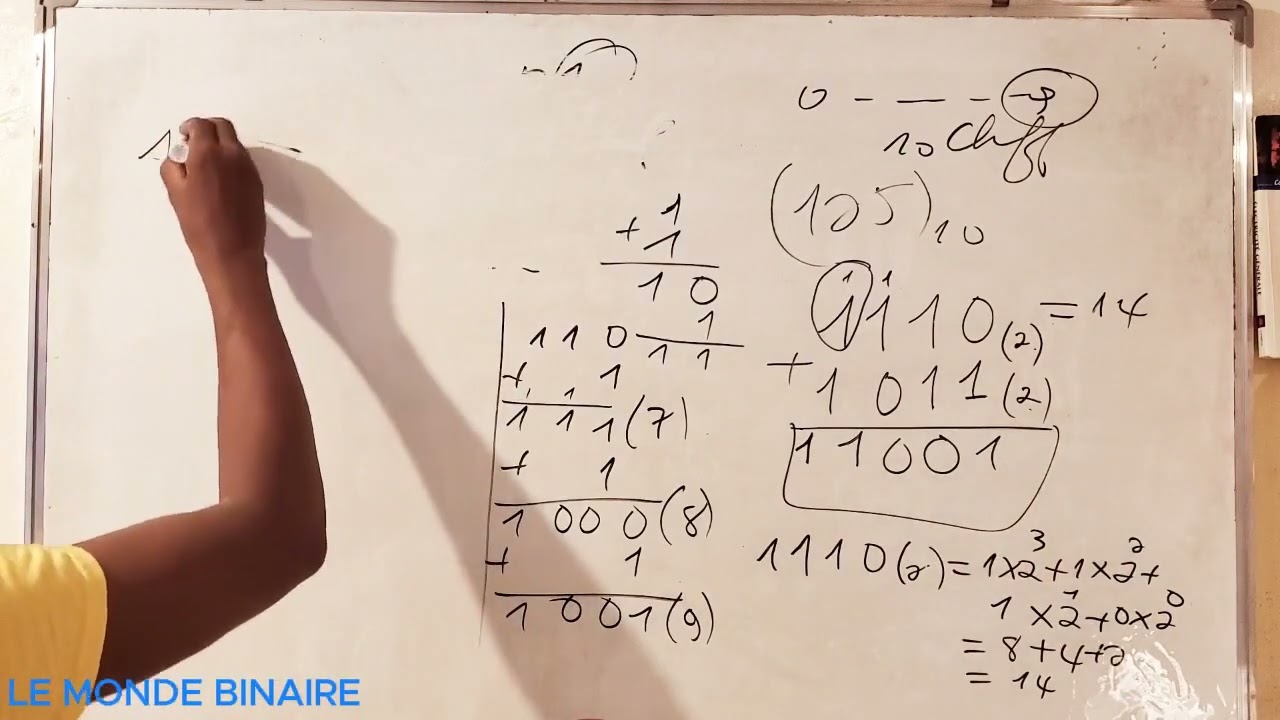 1
0 - - - → 9
10 Chiff
(125)10
1
+ 1
1 0
1
1 1
1 1 0
+ 1
1 1 1 (7)
+ 1
1 0 0 0 (8)
+ 1
1 0 0 1 (9)
1 1
1 1 1 0 (2) = 14
+ 1 0 1 1 (2)
1 1 0 0 1
1 1 1 0 (2) = 1×2³ + 1×2² +
1×2¹ + 0×2⁰
= 8 + 4 + 2
= 14
LE MONDE BINAIRE